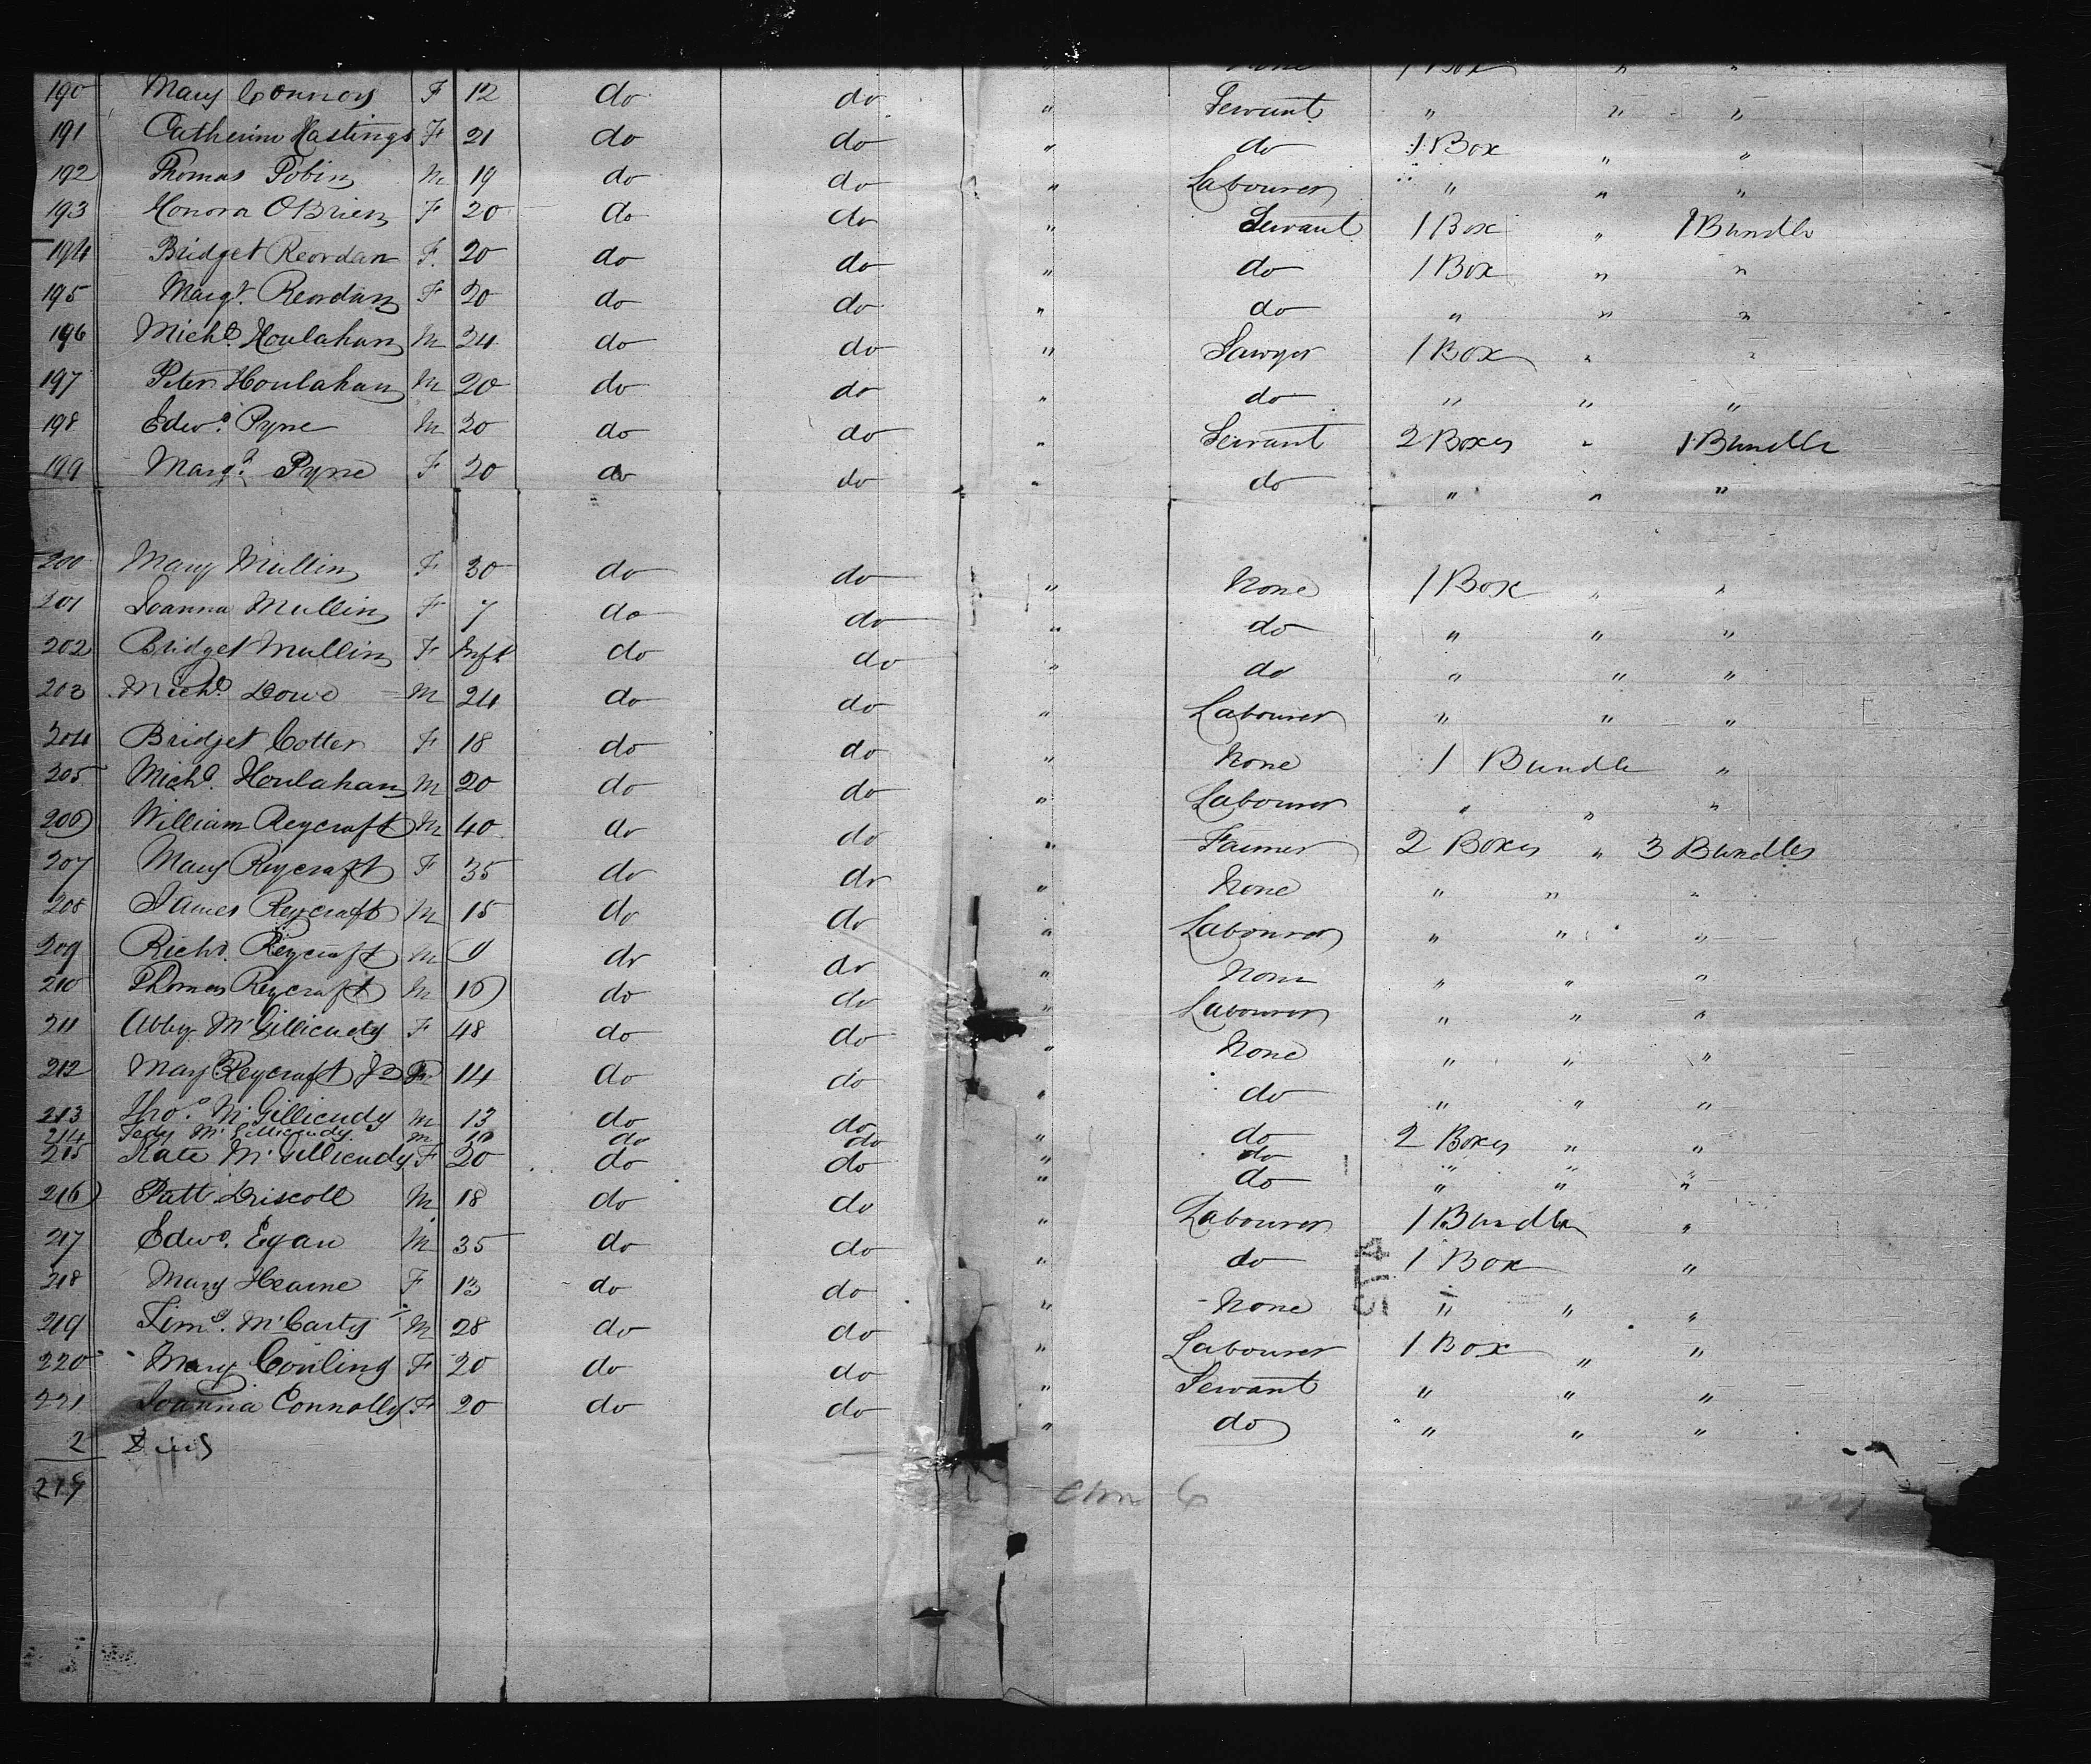 none 1 Box " "
190 Mary Connors F 12 do do " Servant " " "
191 Catherine Hastings F 21 do do " do 1 Box " "
192 Thomas Tobin M 19 do do " Labourer " " "
193 Honora OBrien F 20 do do " Servant 1 Box " 1 Bundle
194 Bridget Reordan F 20 do do " do 1 Box " "
195 Margt. Reordan F 20 do do " do " " "
196 Michl. Houlahan M 24 do do " Sawyer 1 Box " "
197 Peter Houlahan M 20 do do " do " " "
198 Edwd. Pyne M 30 do do " Servant 2 Boxes " 1 Bundle
199 Margt. Pyne F 20 do do " do " " "
200 Mary Mullin F 30 do do " None 1 Box " "
201 Joanna Mullin F 7 do do " do " " "
202 Bridget Mullin F Inft do do " do " " "
203 Michl. Dowd M 24 do do " Labourer " " "
204 Bridget Cotter F 18 do do " None 1 Bundle "
205 Michl. Houlahan M 20 do do " Labourer " " "
206 William Reycraft M 40 do do " Farmer 2 Boxes " 3 Bundles
207 Mary Reycraft F 35 do do " None " " "
208 James Reycraft M 15 do do " Labourer " " "
209 Richd. Reycraft M do do " None " " "
210 Thomas Reycraft M 16 do do " Labourer " " "
211 Abby McGillicudy F 48 do do " None " " "
212 Mary Reycraft F 14 do do " do " " "
213 Thos. McGillicudy M 13 do do " do 2 Boxes " "
214 McGillicudy M do do " do " " "
215 Kate McGillicudy F 20 do do " do " " "
216 Patt Driscoll M 18 do do " Labourer 1 Bundle "
217 Edwd. Egan M 35 do do " do 1 Box "
218 Mary Hearne F 13 do do " None " " "
219 Timy. McCarty M 28 do do " Labourer 1 Box " "
220 Mary Conling F 20 do do " Servant " " "
221 Joanna Connolly F 20 do do " do " " "
2
219